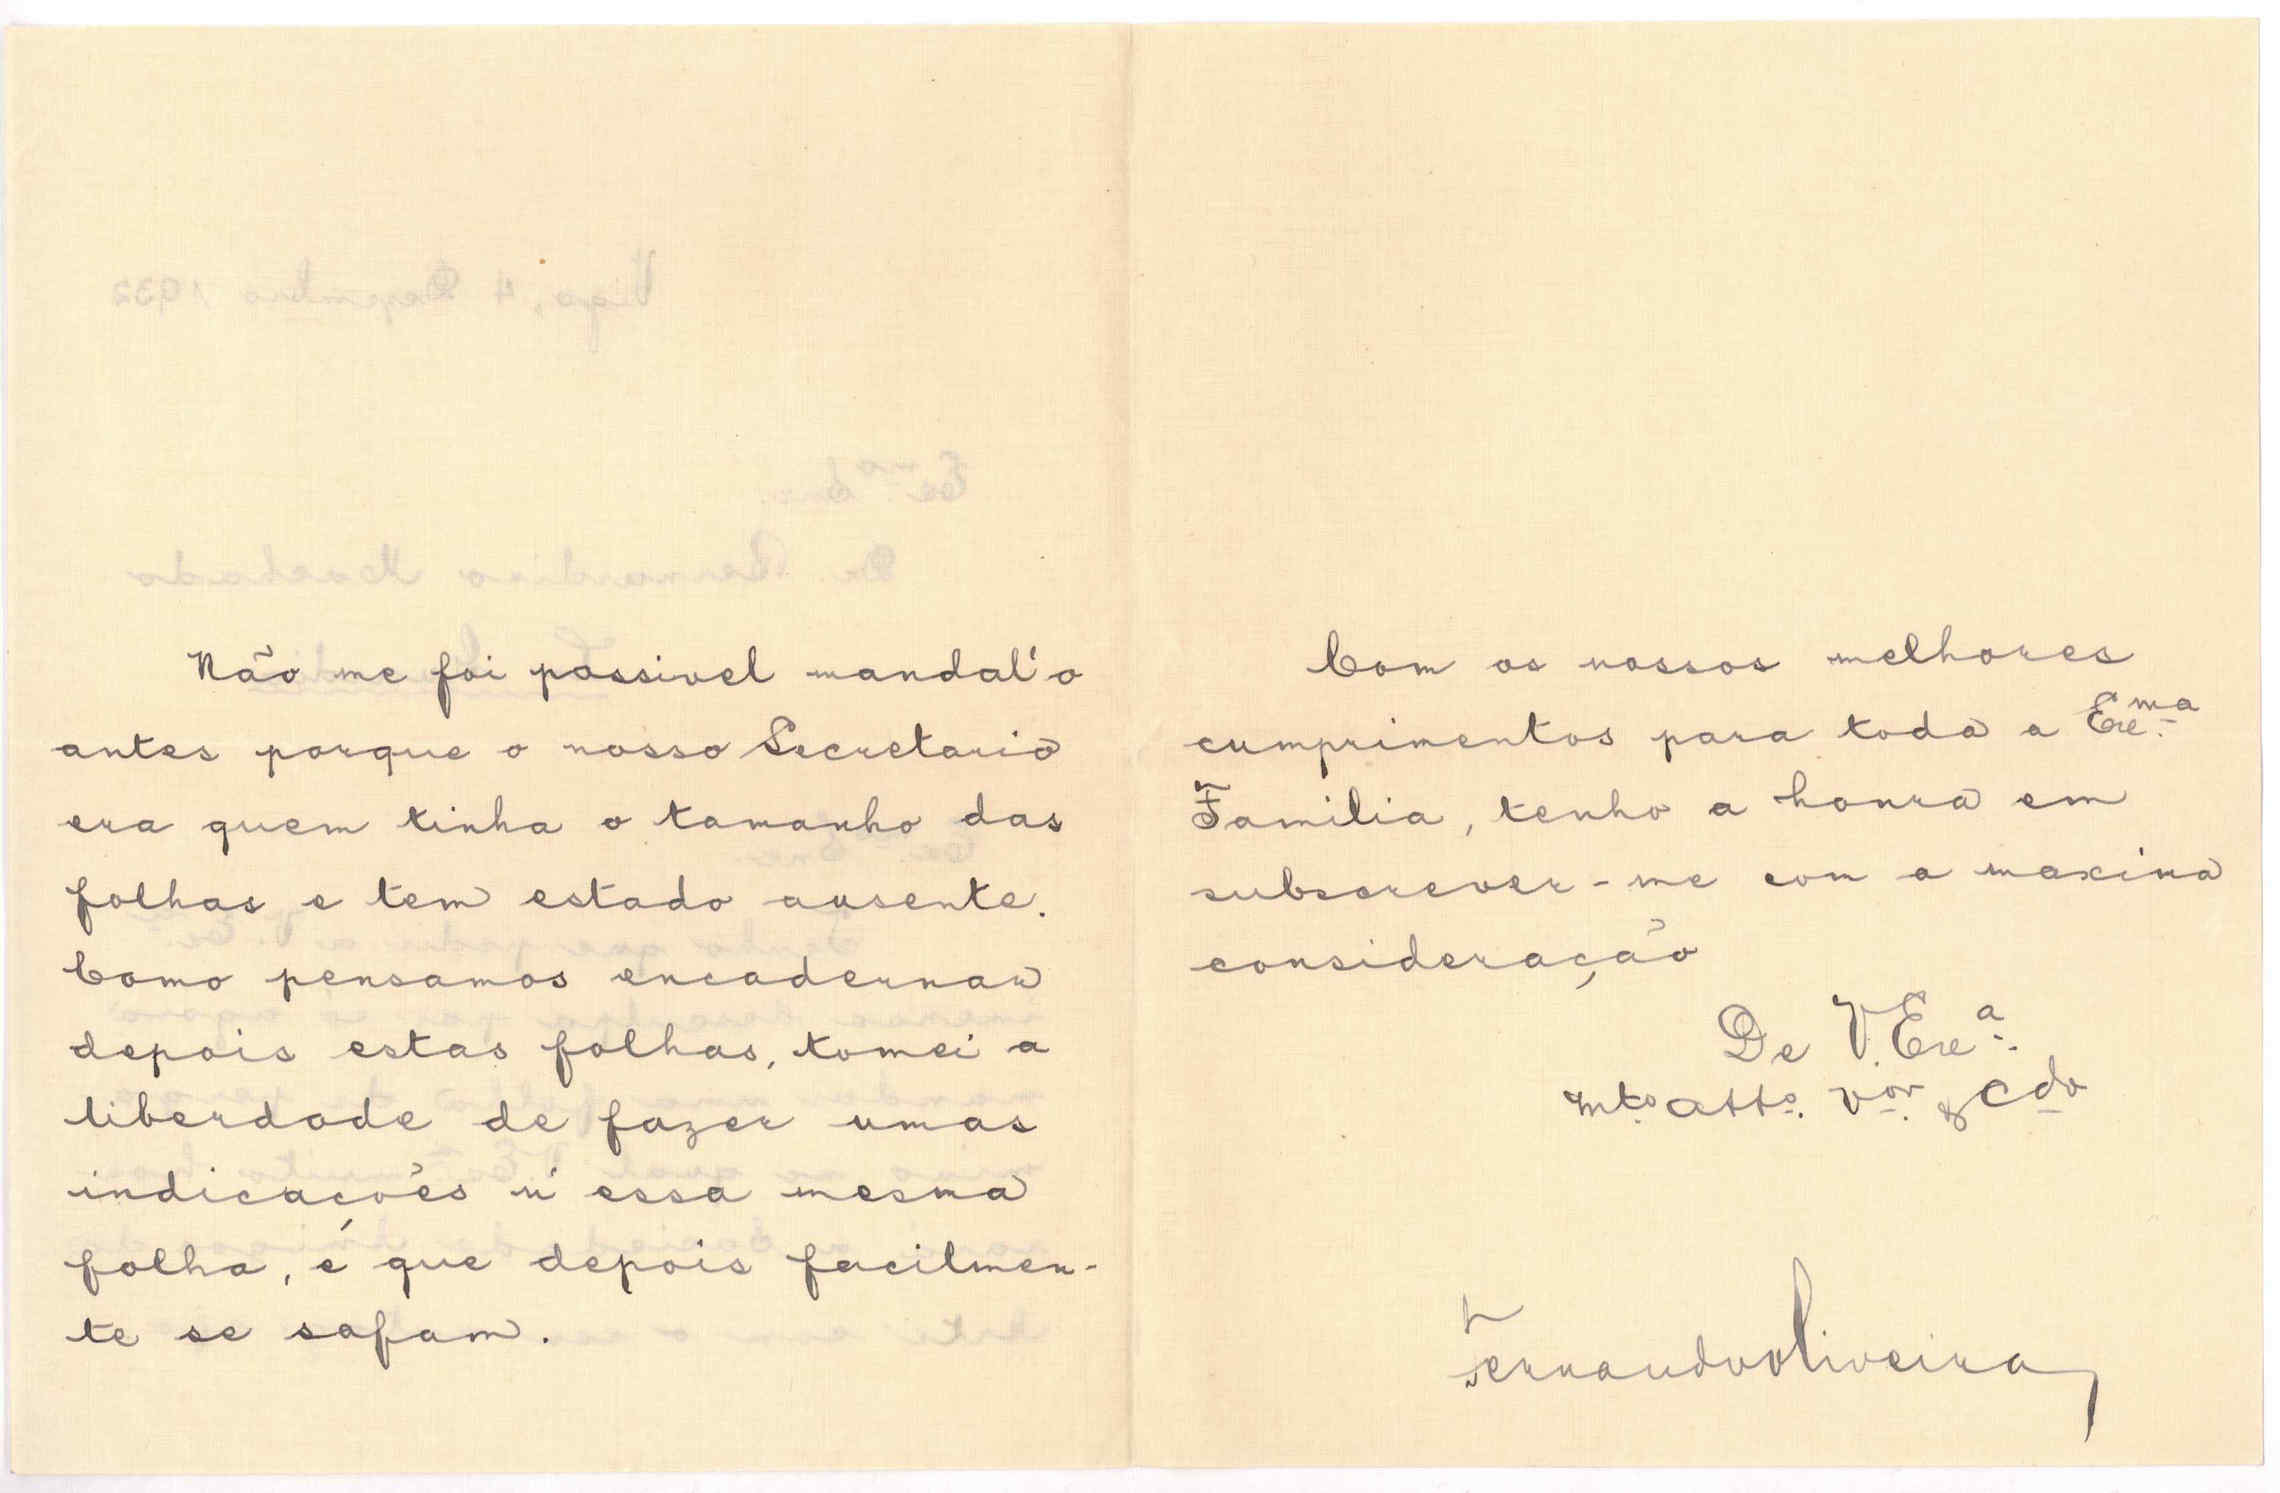 Não me foi possivel mandal'o
antes porque o nosso Secretario
era quem tinha o tamanho das
folhas e tem estado ausente.
Como pensamos encadernar
depois estas folhas, tomei a
liberdade de fazer umas
indicações n'essa mesma
folha, é que depois facilmen-
te se safam.
Com os nossos melhores
cumprimentos para toda a Exc.ma
Familia, tenho a honra em
subscrever-me com a maxima
consideração
De V. Exc.a
Mto. atto. vor. & cdo
Fernando Oliveira